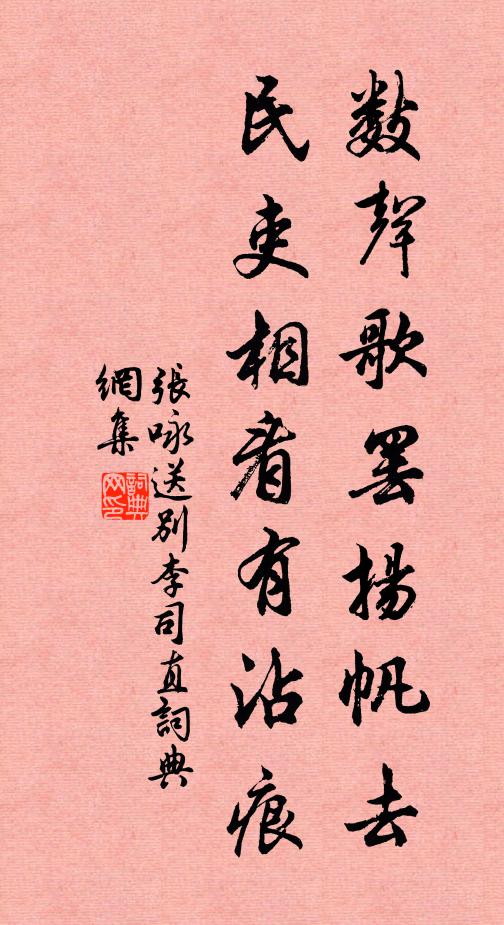 數聲歌罷揚帆去
民吏相看有沾痕
張咏送別李司直詞典
網集
詞典
网印